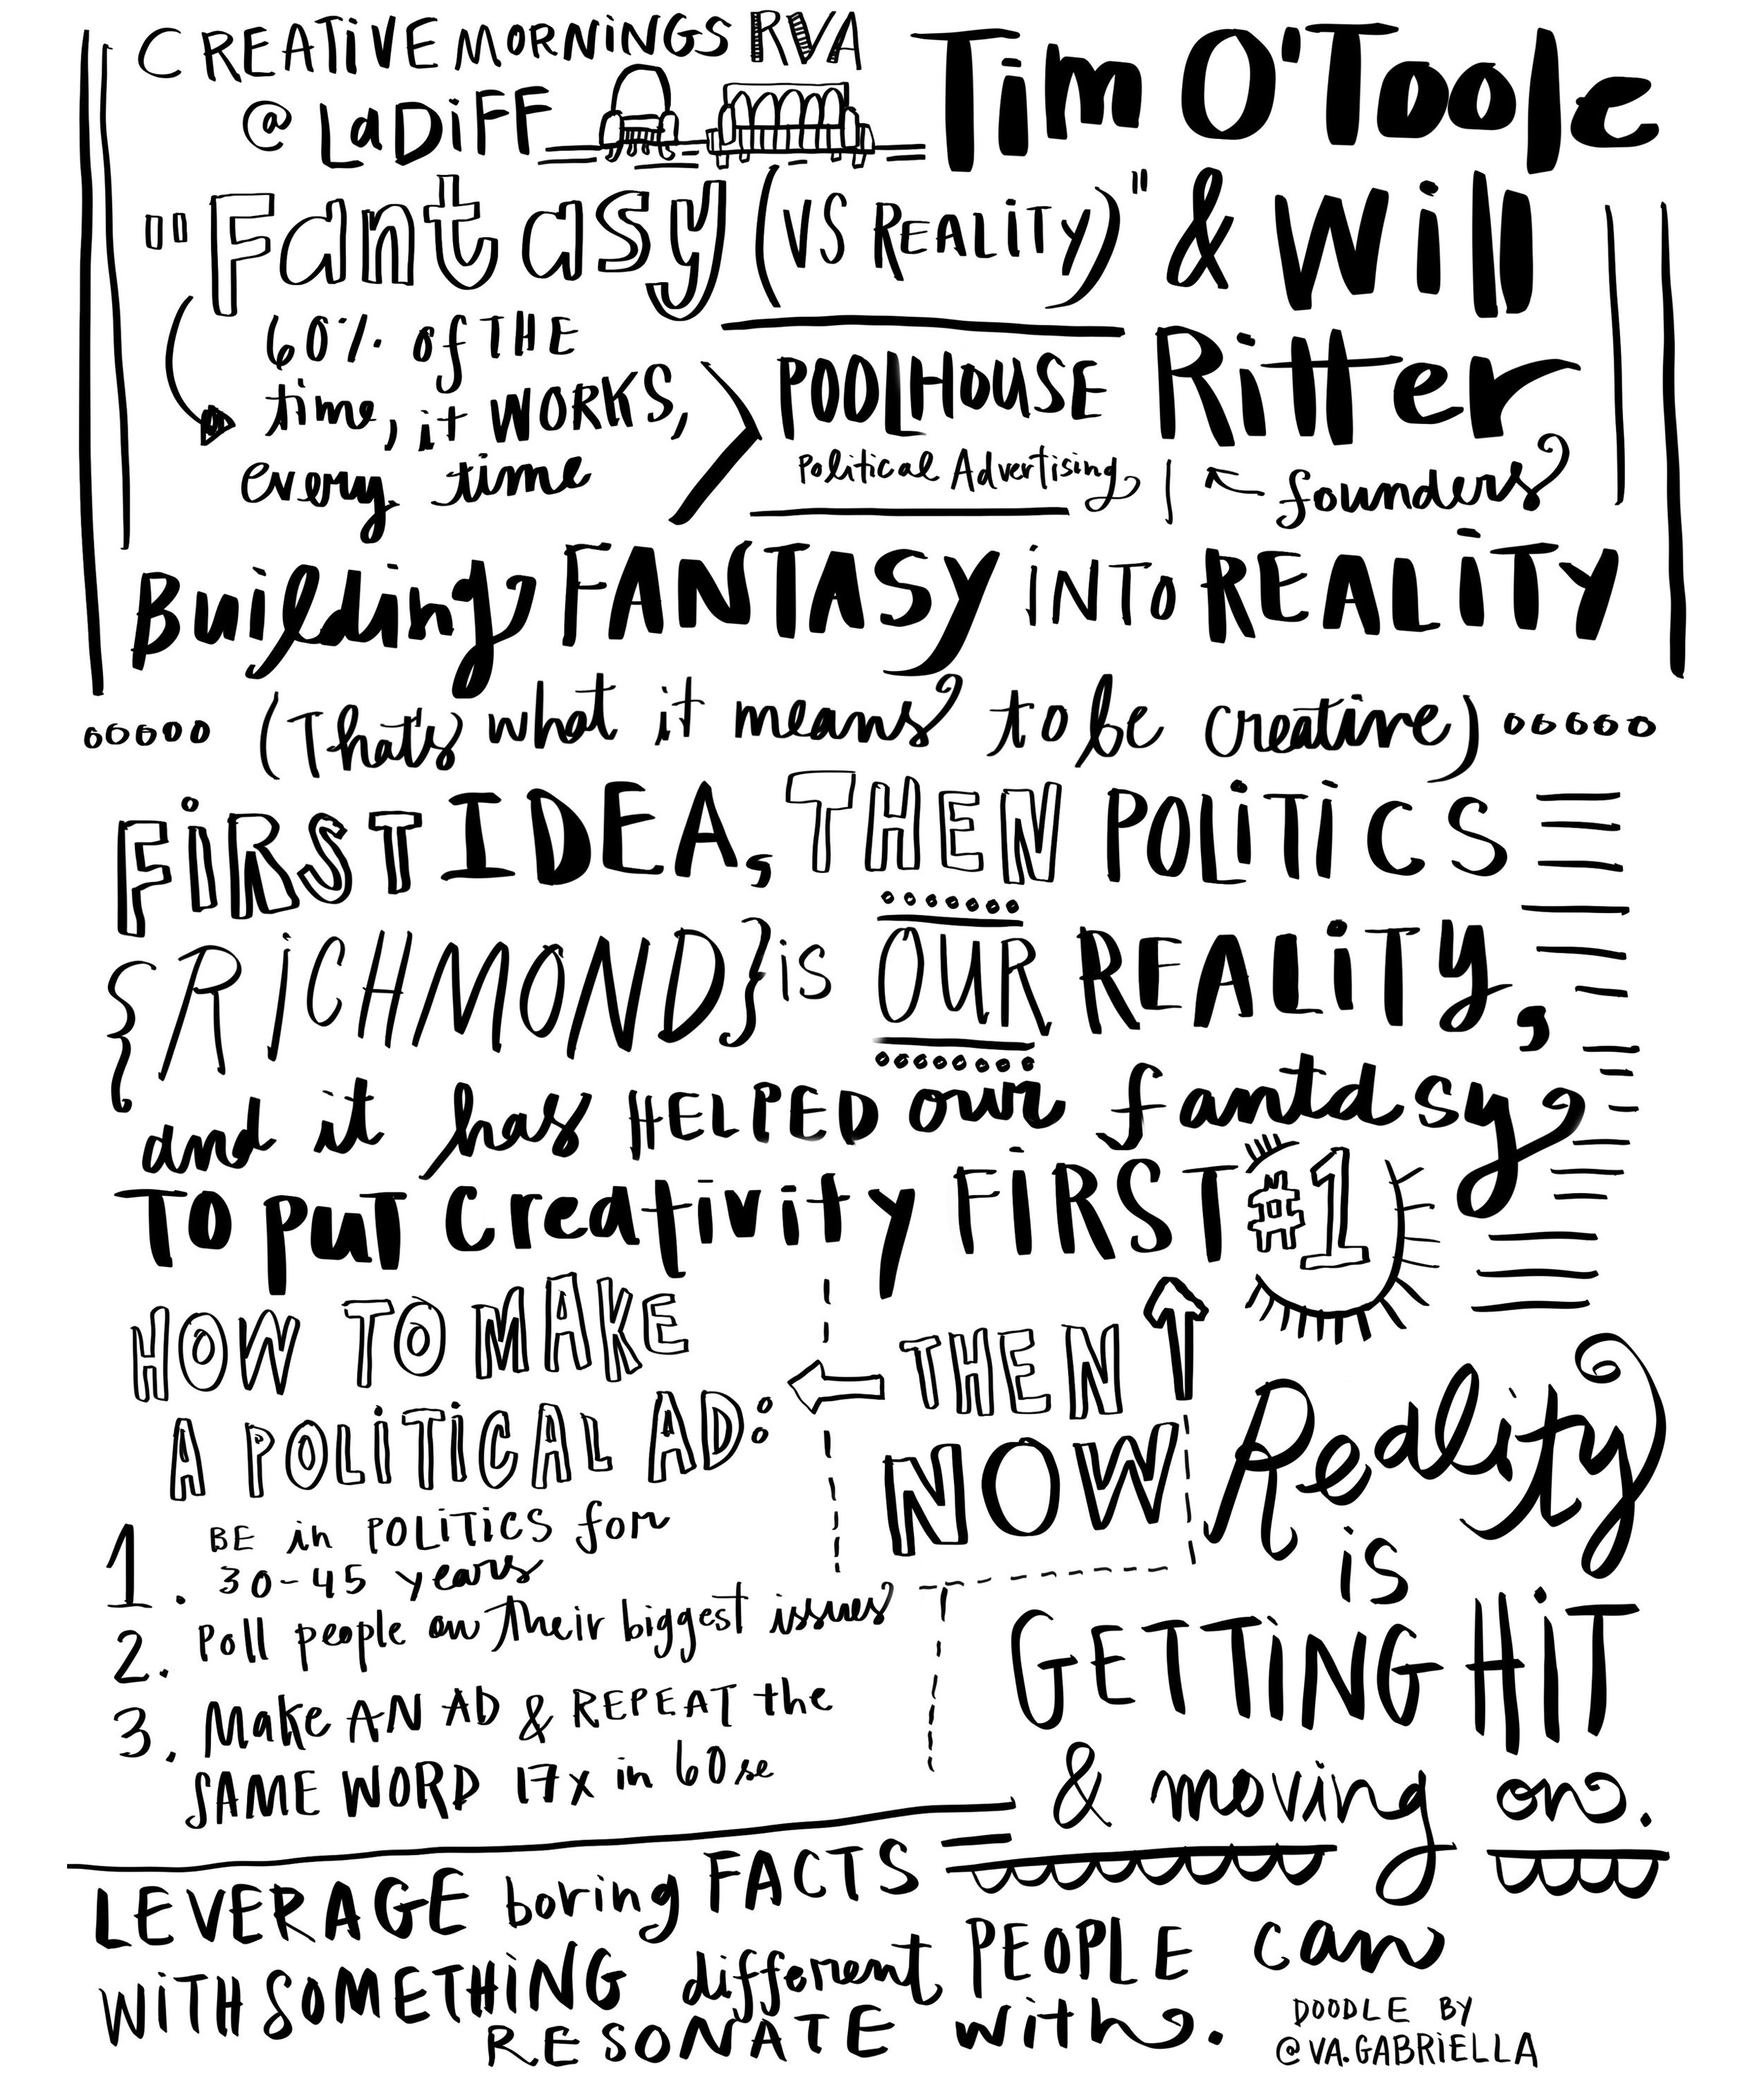 CREATIVE MORNINGS RVA
@ LaDiFF
Tim O'Toole
"Fantasy (VS REALITY)" & Will
Ritter
60% of THE
time, it WORKS,
every time
POOLHOUSE
Political Advertising
founders
Building FANTASY iNTO REALITY
(Thats what it means to be creative)
FiRST IDEA, THEN POLiTiCS
{RiCHMOND} is OUR REALiTY,
and it has HELPED our fantasy
TO PUT creativity FiRST #1
HOW TO MAKE
A POLiTiCAL AD:
THEN
NOW
1. BE in POLITICS for
30-45 years
2. Poll people on their biggest issues
3. Make AN AD & REPEAT the
SAME WORD 17x in 60se
Reality
is
GETTiNG HiT
& moving on.
LEVERAGE boring FACTS
WiTH SOMETHiNG different PEOPLE can
RESONATE with.
DOODLE BY
@VA.GABRiELLA